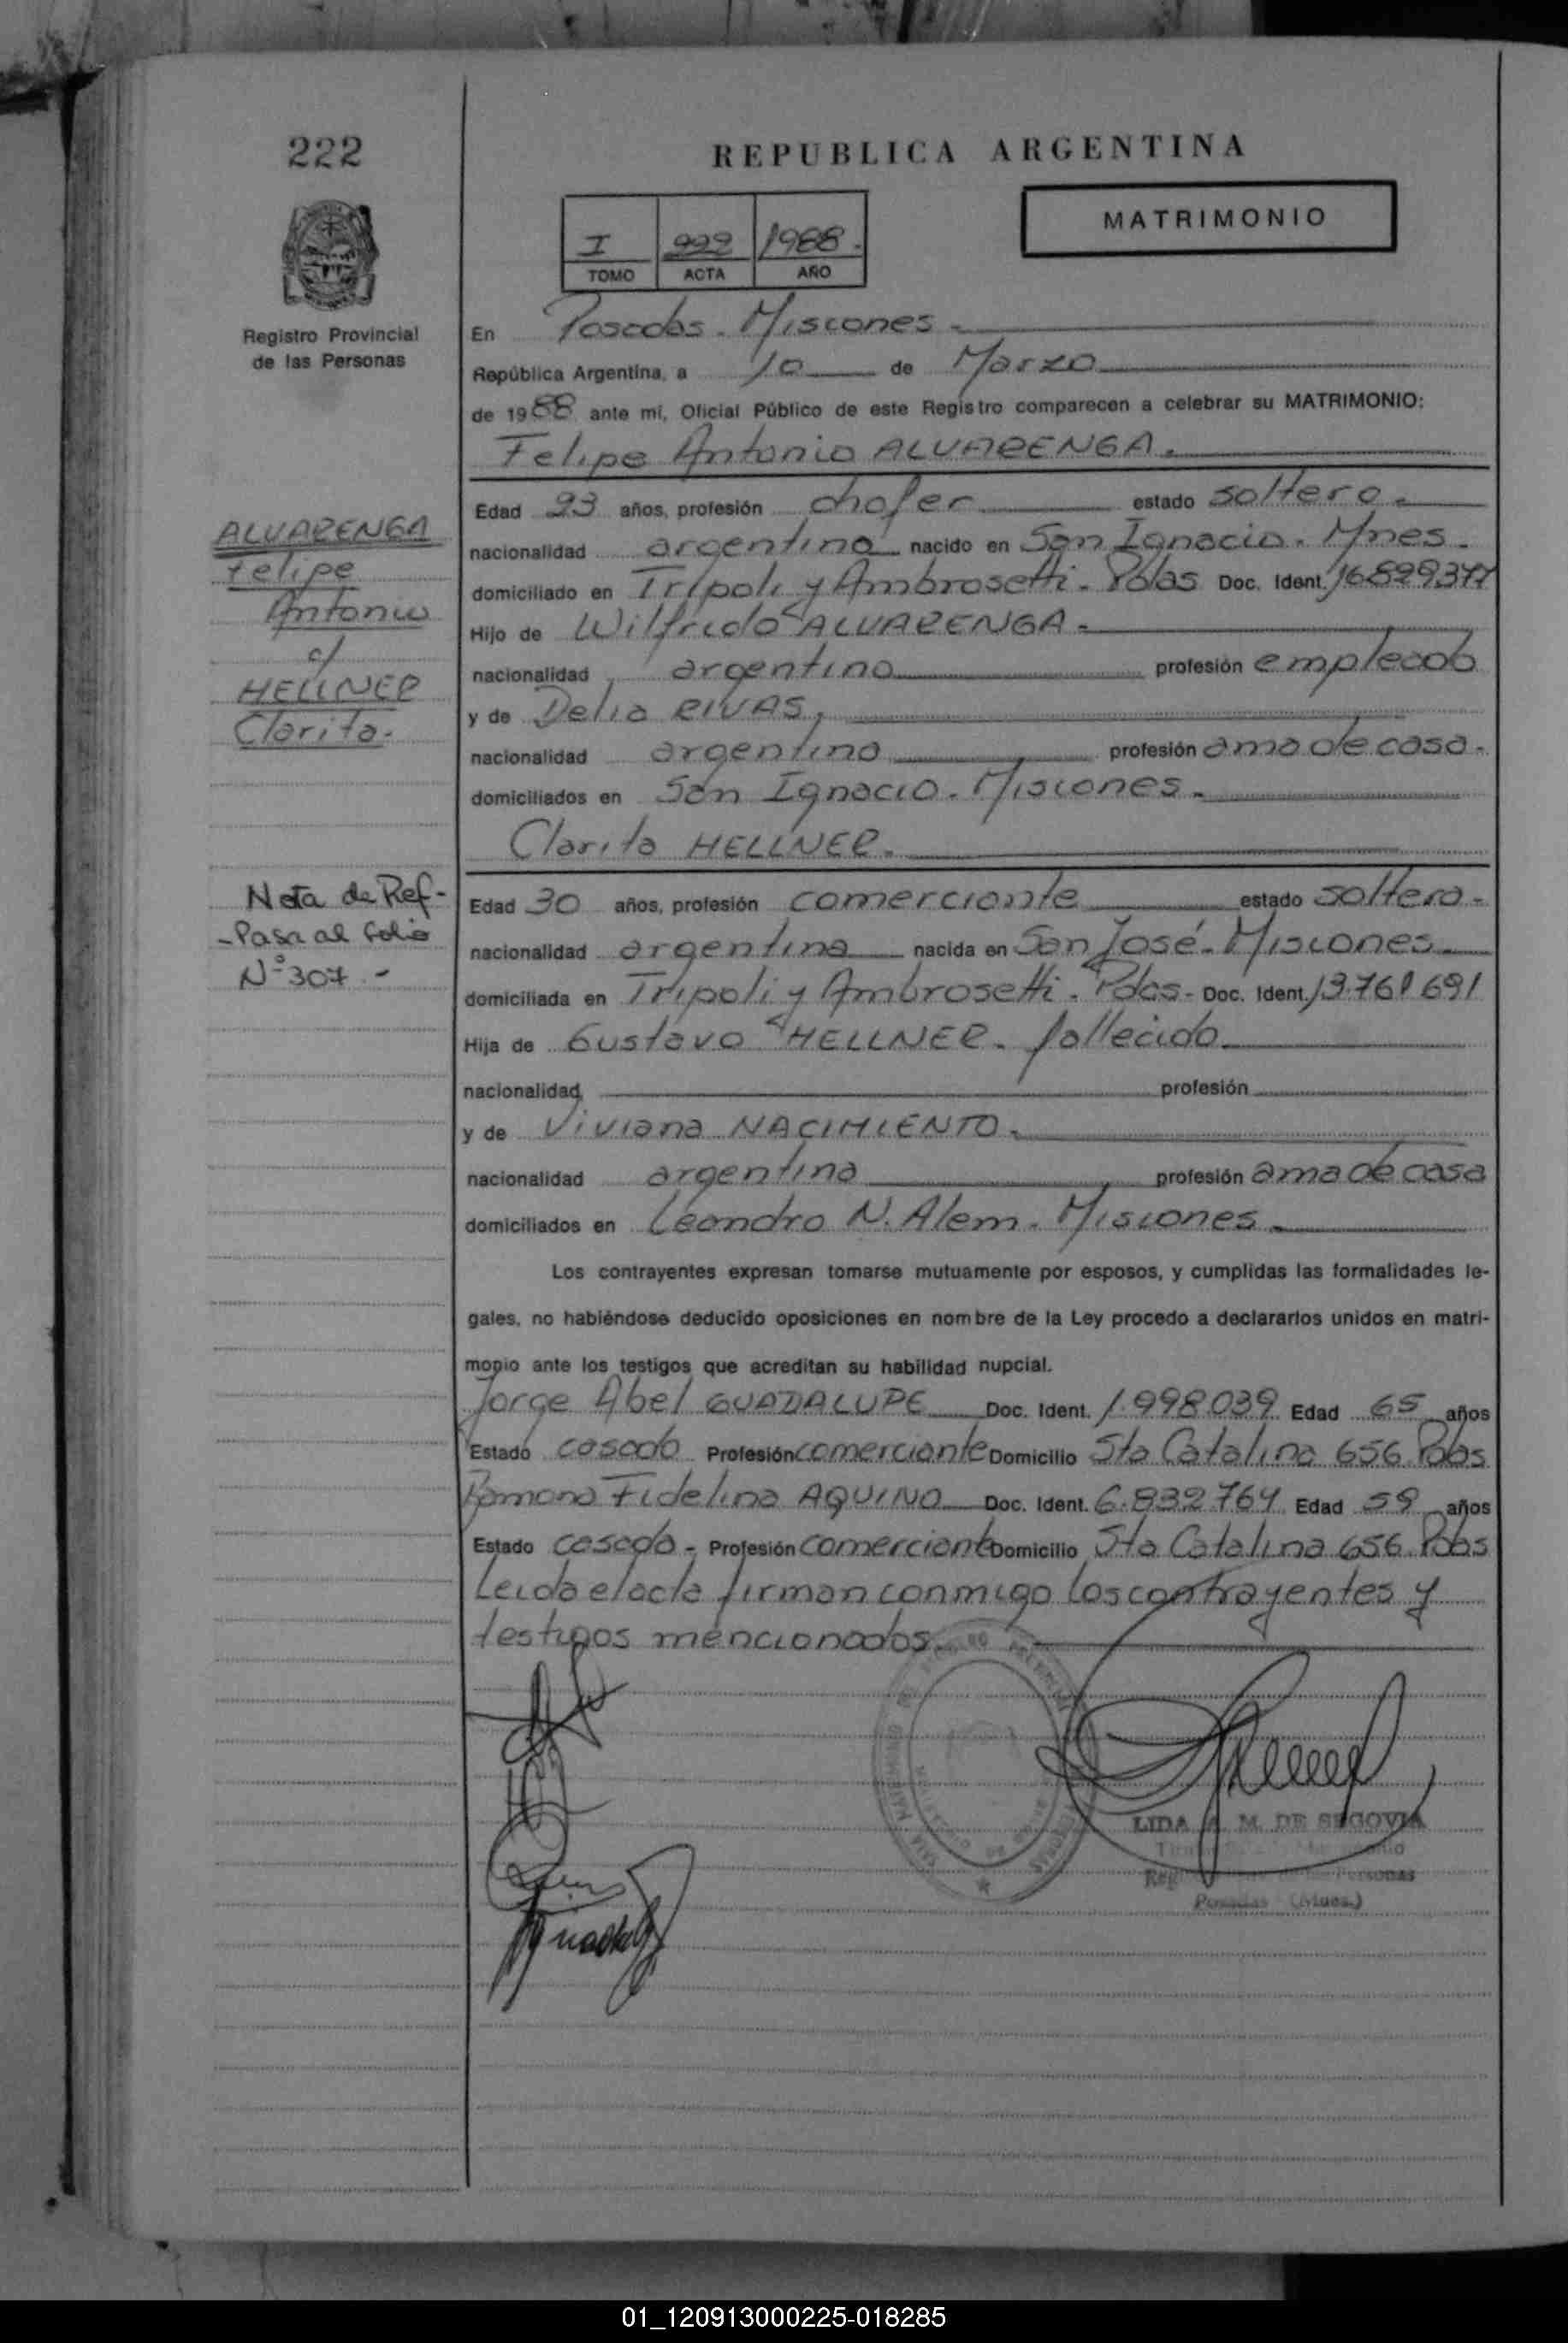 222
REPUBLICA ARGENTINA
MATRIMONIO
I 222 1988.
TOMO ACTA AÑO
Registro Provincial
de las Personas
En Posadas. Misiones.
República Argentina, a 10 de Marzo
de 1988 ante mí, Oficial Público de este Registro comparecen a celebrar su MATRIMONIO:
Felipe Antonio ALVARENGA.
ALVARENGA
Felipe
Antonio
c/
HELLNER
Clarita.
Edad 23 años, profesión chofer estado soltero.
nacionalidad argentina nacido en San Ignacio. Mnes.
domiciliado en Tripoli y Ambrosetti. Pdas Doc. Ident. 16.829377
Hijo de Wilfrido ALVARENGA.
nacionalidad argentina profesión empleado
y de Delia RIVAS,
nacionalidad argentina profesión ama de casa.
domiciliados en San Ignacio. Misiones.
Clarita HELLNER.
Nota de Ref-
-Pasa al folio
Nº 307.-
Edad 30 años, profesión comerciante estado soltera.
nacionalidad argentina nacida en San José. Misiones.
domiciliada en Tripoli y Ambrosetti. Pdas. Doc. Ident. 13.761691
Hija de Gustavo HELLNER. fallecido.
nacionalidad profesión
y de Viviana NACIMIENTO.
nacionalidad argentina profesión ama de casa
domiciliados en Leandro N. Alem. Misiones.
Los contrayentes expresan tomarse mutuamente por esposos, y cumplidas las formalidades le-
gales, no habiéndose deducido oposiciones en nombre de la Ley procedo a declararlos unidos en matri-
monio ante los testigos que acreditan su habilidad nupcial.
Jorge Abel GUADALUPE Doc. Ident. 1.998.039 Edad 65 años
Estado casado Profesión comerciante Domicilio Sta Catalina 656. Pdas
Ramona Fidelina AQUINO Doc. Ident. 6.832764 Edad 59 años
Estado casada. Profesión comerciante Domicilio Sta Catalina 656. Pdas
Leida el acta firman conmigo los contrayentes y
testigos mencionados.
LIDA A. M. DE SEGOVIA
Personas
Posadas (Mnes.)
01_120913000225-018285